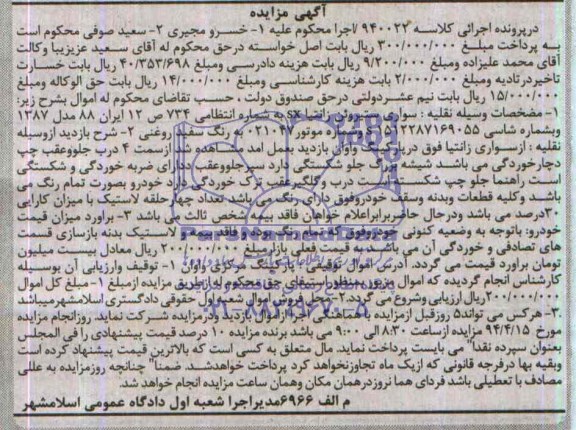 آگهی مزایده
درپرونده اجرائی کلاسه ۹۴۰۰۲۲ /اجرا محکوم علیه ۱- خسرو مجیری ۲- سعید صوفی محکوم است
به پرداخت مبلغ ۳۰۰/۰۰۰/۰۰۰ ریال بابت اصل خواسته درحق محکوم له آقای سعید عزیزیبا وکالت
آقای محمد علیزاده ومبلغ ۹/۲۰۰/۰۰۰ ریال بابت هزینه دادرسی ومبلغ ۴۰/۳۵۳/۶۹۸ ریال بابت خسارت
تاخیردرتادیه ومبلغ ۲/۰۰۰/۰۰۰ بابت هزینه کارشناسی ومبلغ ۱۴/۰۰۰/۰۰۰ ریال بابت حق الوکاله ومبلغ
۱۵/۰۰۰/۰۰۰ ریال بابت نیم عشردولتی درحق صندوق دولت ، حسب تقاضای محکوم له اموال بشرح زیر:
۱-مشخصات وسیله نقلیه : سواری سیتروئن زانتیا SX به شماره انتظامی ۷۳۴ ص ۱۲ ایران ۸۸ مدل ۱۳۸۷
وبشماره شاسی ۲۲۸۷۱۶۹۰۵۵ وشماره موتور ۰۲۱۰۴ به رنگ سفید روغنی ۲- شرح بازدید ازوسیله
نقلیه : ازسواری زانتیا فوق درپارکینگ واوان بازدید بعمل امد مشاهده شد ازسمت ۴ درب جلووعقب چپ
دچارخوردگی می باشد شیشه بزرگ جلو شکستگی دارد سپرجلووعقب دارای ضربه خوردگی و شکستگی
است راهنما جلو چپ شکسته است درب وگلگیرعقب ترک خوردگی دارد خودرو بصورت تمام رنگ می
باشد وکلیه قطعات وبدنه وسقف خودروفوق دارای رنگ می باشد تعداد چهارحلقه لاستیک با میزان کارایی
۳۰درصد می باشد ودرحال حاضربرابراعلام خواهان فاقد بیمه شخص ثالث می باشد ۳- براورد میزان قیمت
خودرو: باتوجه به وضعیه کنونی خودروفوق که تمام رنگ بوده و فاقد بیمه لاستیک بدنه بازسازی قسمت
های تصادفی و خوردگی آن می باشد به قیمت فعلی بازارمبلغ ۲۰۰/۰۰۰/۰۰۰ ریال معادل بیست میلیون
تومان براورد قیمت می گردد. آدرس اموال توقیفی : پارکینگ مرکزی واوان ۱- توقیف وارزیابی آن بوسیله
کارشناس انجام گردیده که اموال مزبور بمنظور استیفای حق محکوم له ازطریق مزایده ازمبلغ ۱-مبلغ کل اموال
۲۰۰/۰۰۰/۰۰۰ریال ارزیابی وشروع می گردد.۲-محل فروش اموال شعبه اول حقوقی دادگستری اسلامشهرمیباشد
۳-هرکس می تواند۵ روزقبل ازمزایده با هماهنگی این اجرا ازاموال بازدید و درمزایده شرکت نماید. روزانجام مزایده
مورخ ۹۴/۴/۱۵ مزایده ازساعت ۸:۳۰ الی ۹:۰۰ می باشد برنده مزایده ۱۰ درصد قیمت پیشنهادی را فی المجلس
بعنوان سپرده نقدا" می بایست پرداخت نماید. مال متعلق به کسی است که بالاترین قیمت پیشنهاد کرده است
وبقیه بها درفرجه قانونی که ازیک ماه تجاوزنخواهد کرد پرداخت خواهدشد. ضمنا" چنانچه روزمزایده به عللی
مصادف با تعطیلی باشد فردای هما نروزدرهمان مکان وهمان ساعت مزایده انجام خواهد شد.
م الف ۶۹۶۶مدیراجرا شعبه اول دادگاه عمومی اسلامشهر